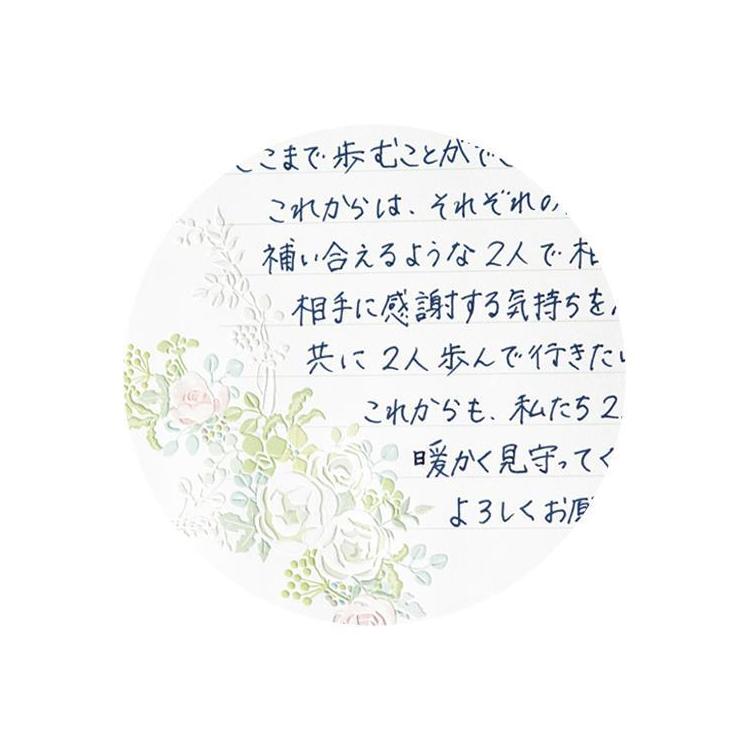 ここまで歩むことができ
これからは、それぞれの
補い合えるような2人で
相手に感謝する気持ちを
共に2人歩んで行きたい
これからも、私たち2
暖かく見守ってく
よろしくお願